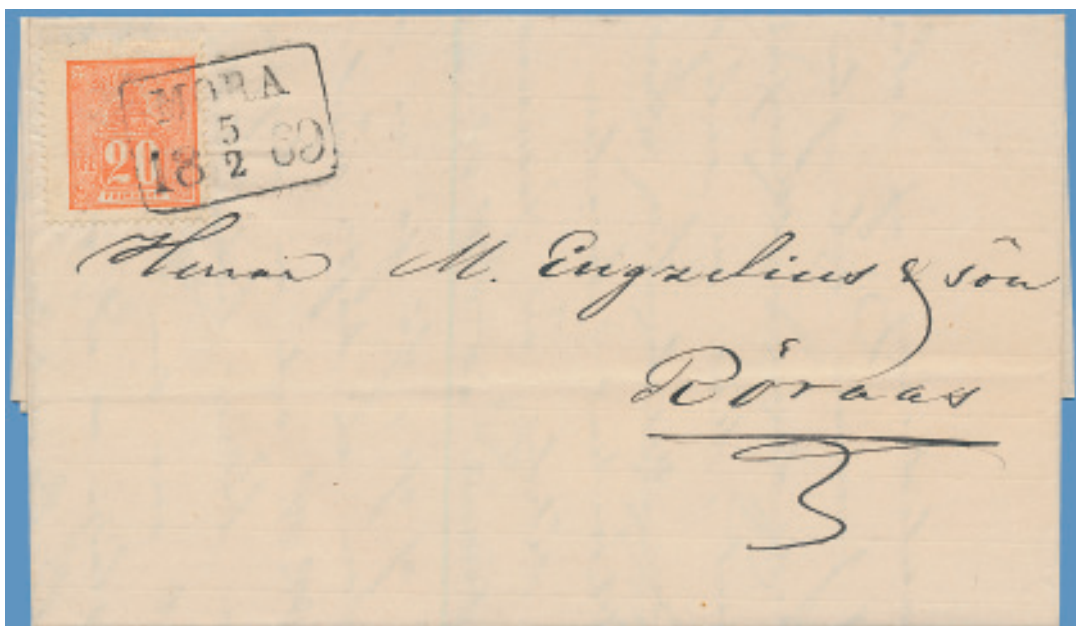 MORA
5
18 2 69
20
Herrar M. Engzelius & sön
Röraas